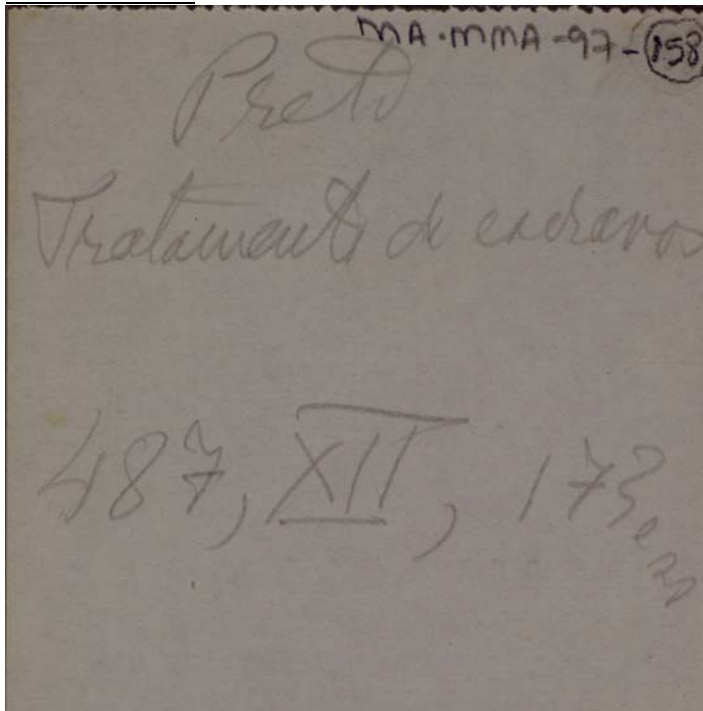 MA-MMA-97-158
Preto
Tratamento de escravos
487, XII, 173, e